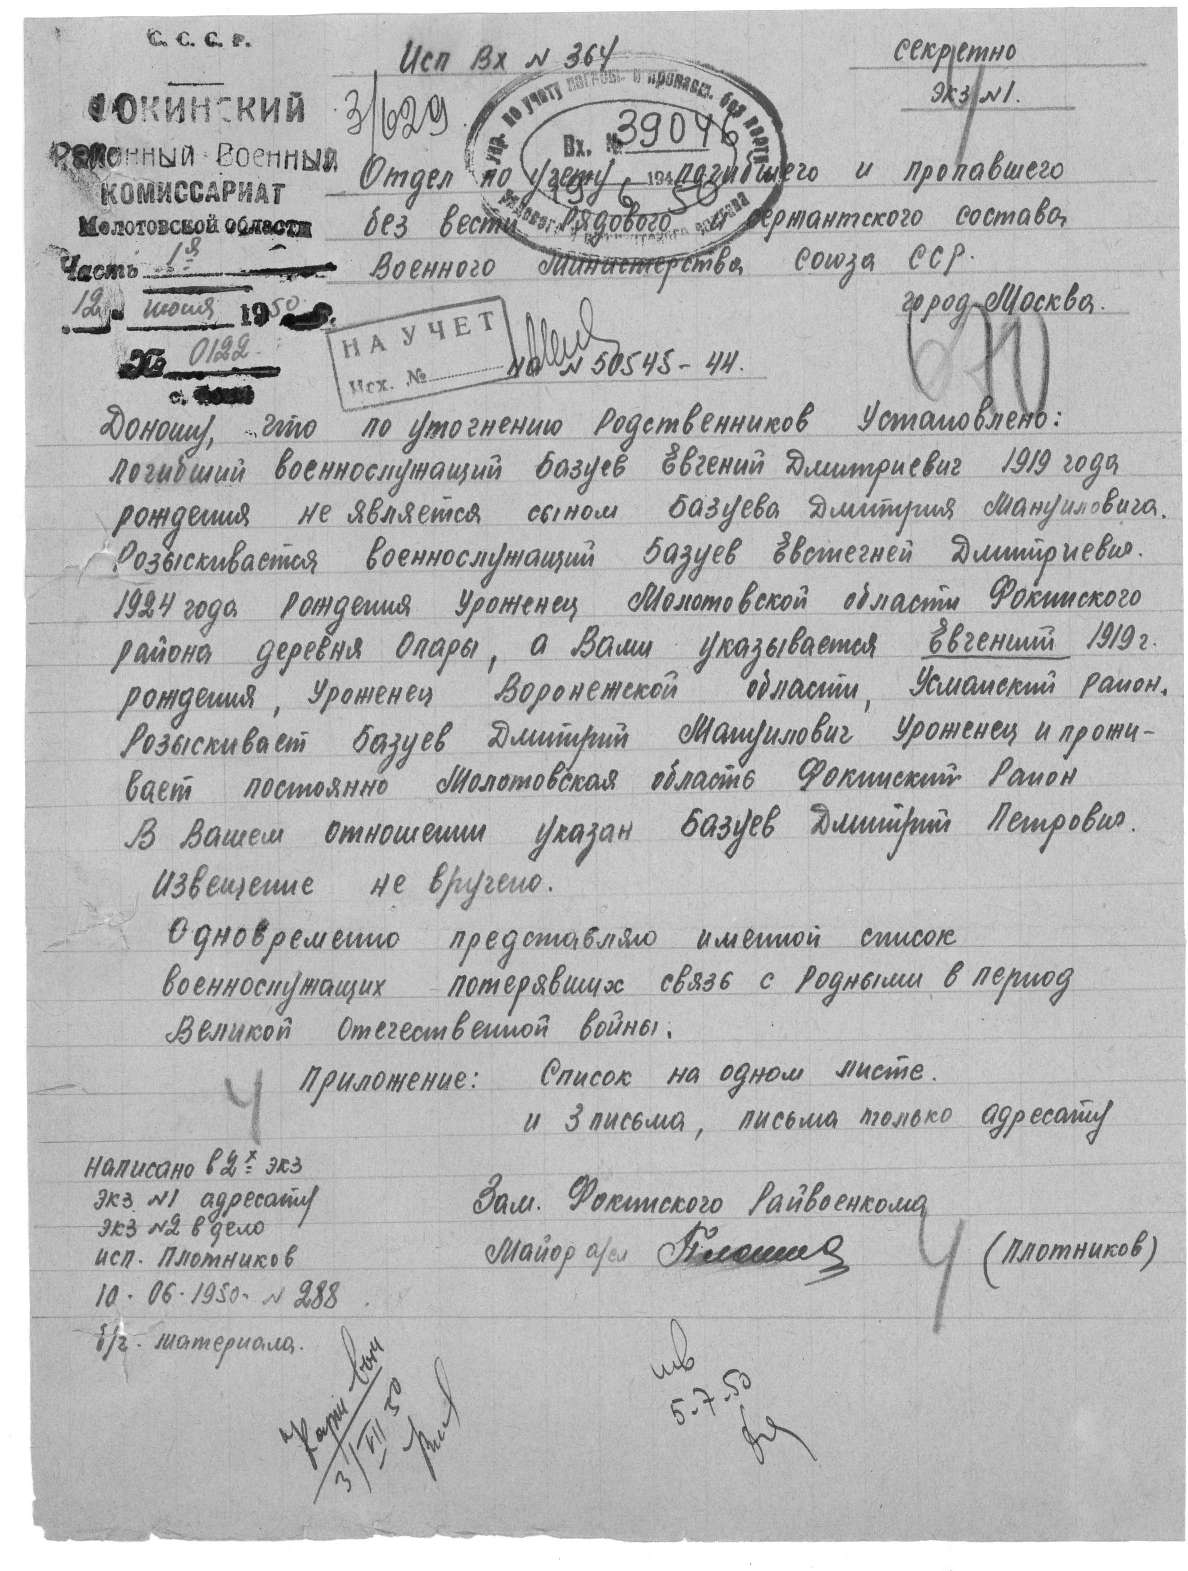 С. С. С. Р.
ФОКИНСКИЙ
Районный Военный
КОМИССАРИАТ
Молотовской области
Часть 1я
12 июня 1950
№ 0122
Исп Вх № 364
3/629
секретно
экз №1.
Упр. по учету погибш. и пропавш. без вести
Вх. № 39046
19 6 1950
рядового и сержантского состава
Отдел по учету погибшего и пропавшего
без вести рядового и сержантского состава
Военного Министерства Союза ССР.
город Москва.
НА УЧЕТ
Исх. №
на № 50545-44.
Доношу, что по уточнению Родственников Установлено:
погибший военнослужащий Базуев Евгений Дмитриевич 1919 года
рождения не является сыном Базуева Дмитрия Мануиловича.
Розыскивается военнослужащий Базуев Евстегней Дмитриевич.
1924 года Рождения Уроженец Молотовской области Фокинского
района деревня Опары, а Вами указывается Евгений 1919 г.
рождения, Уроженец Воронежской области, Усманский район.
Розыскивает Базуев Дмитрий Мануилович Уроженец и прожи-
вает постоянно Молотовская область Фокинский Район
В Вашем отношении указан Базуев Дмитрий Петрович.
Извещение не вручено.
Одновременно представляю именной список
военнослужащих потерявших связь с Родными в период
Великой Отечественной войны.
Приложение: Список на одном листе.
и 3 письма, письма только адресату
написано в 2х экз
экз №1 адресату
экз №2 в дело
исп. Плотников
10-06-1950 № 288
б/ч. материала.
Зам. Фокинского Райвоенкома
Майор а/сл
(Плотников)
3/VII 50
5-7-50